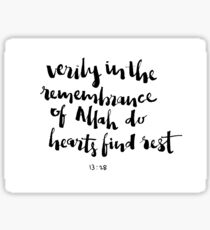 verily in the
remembrance
of Allah do
hearts find rest
13:28